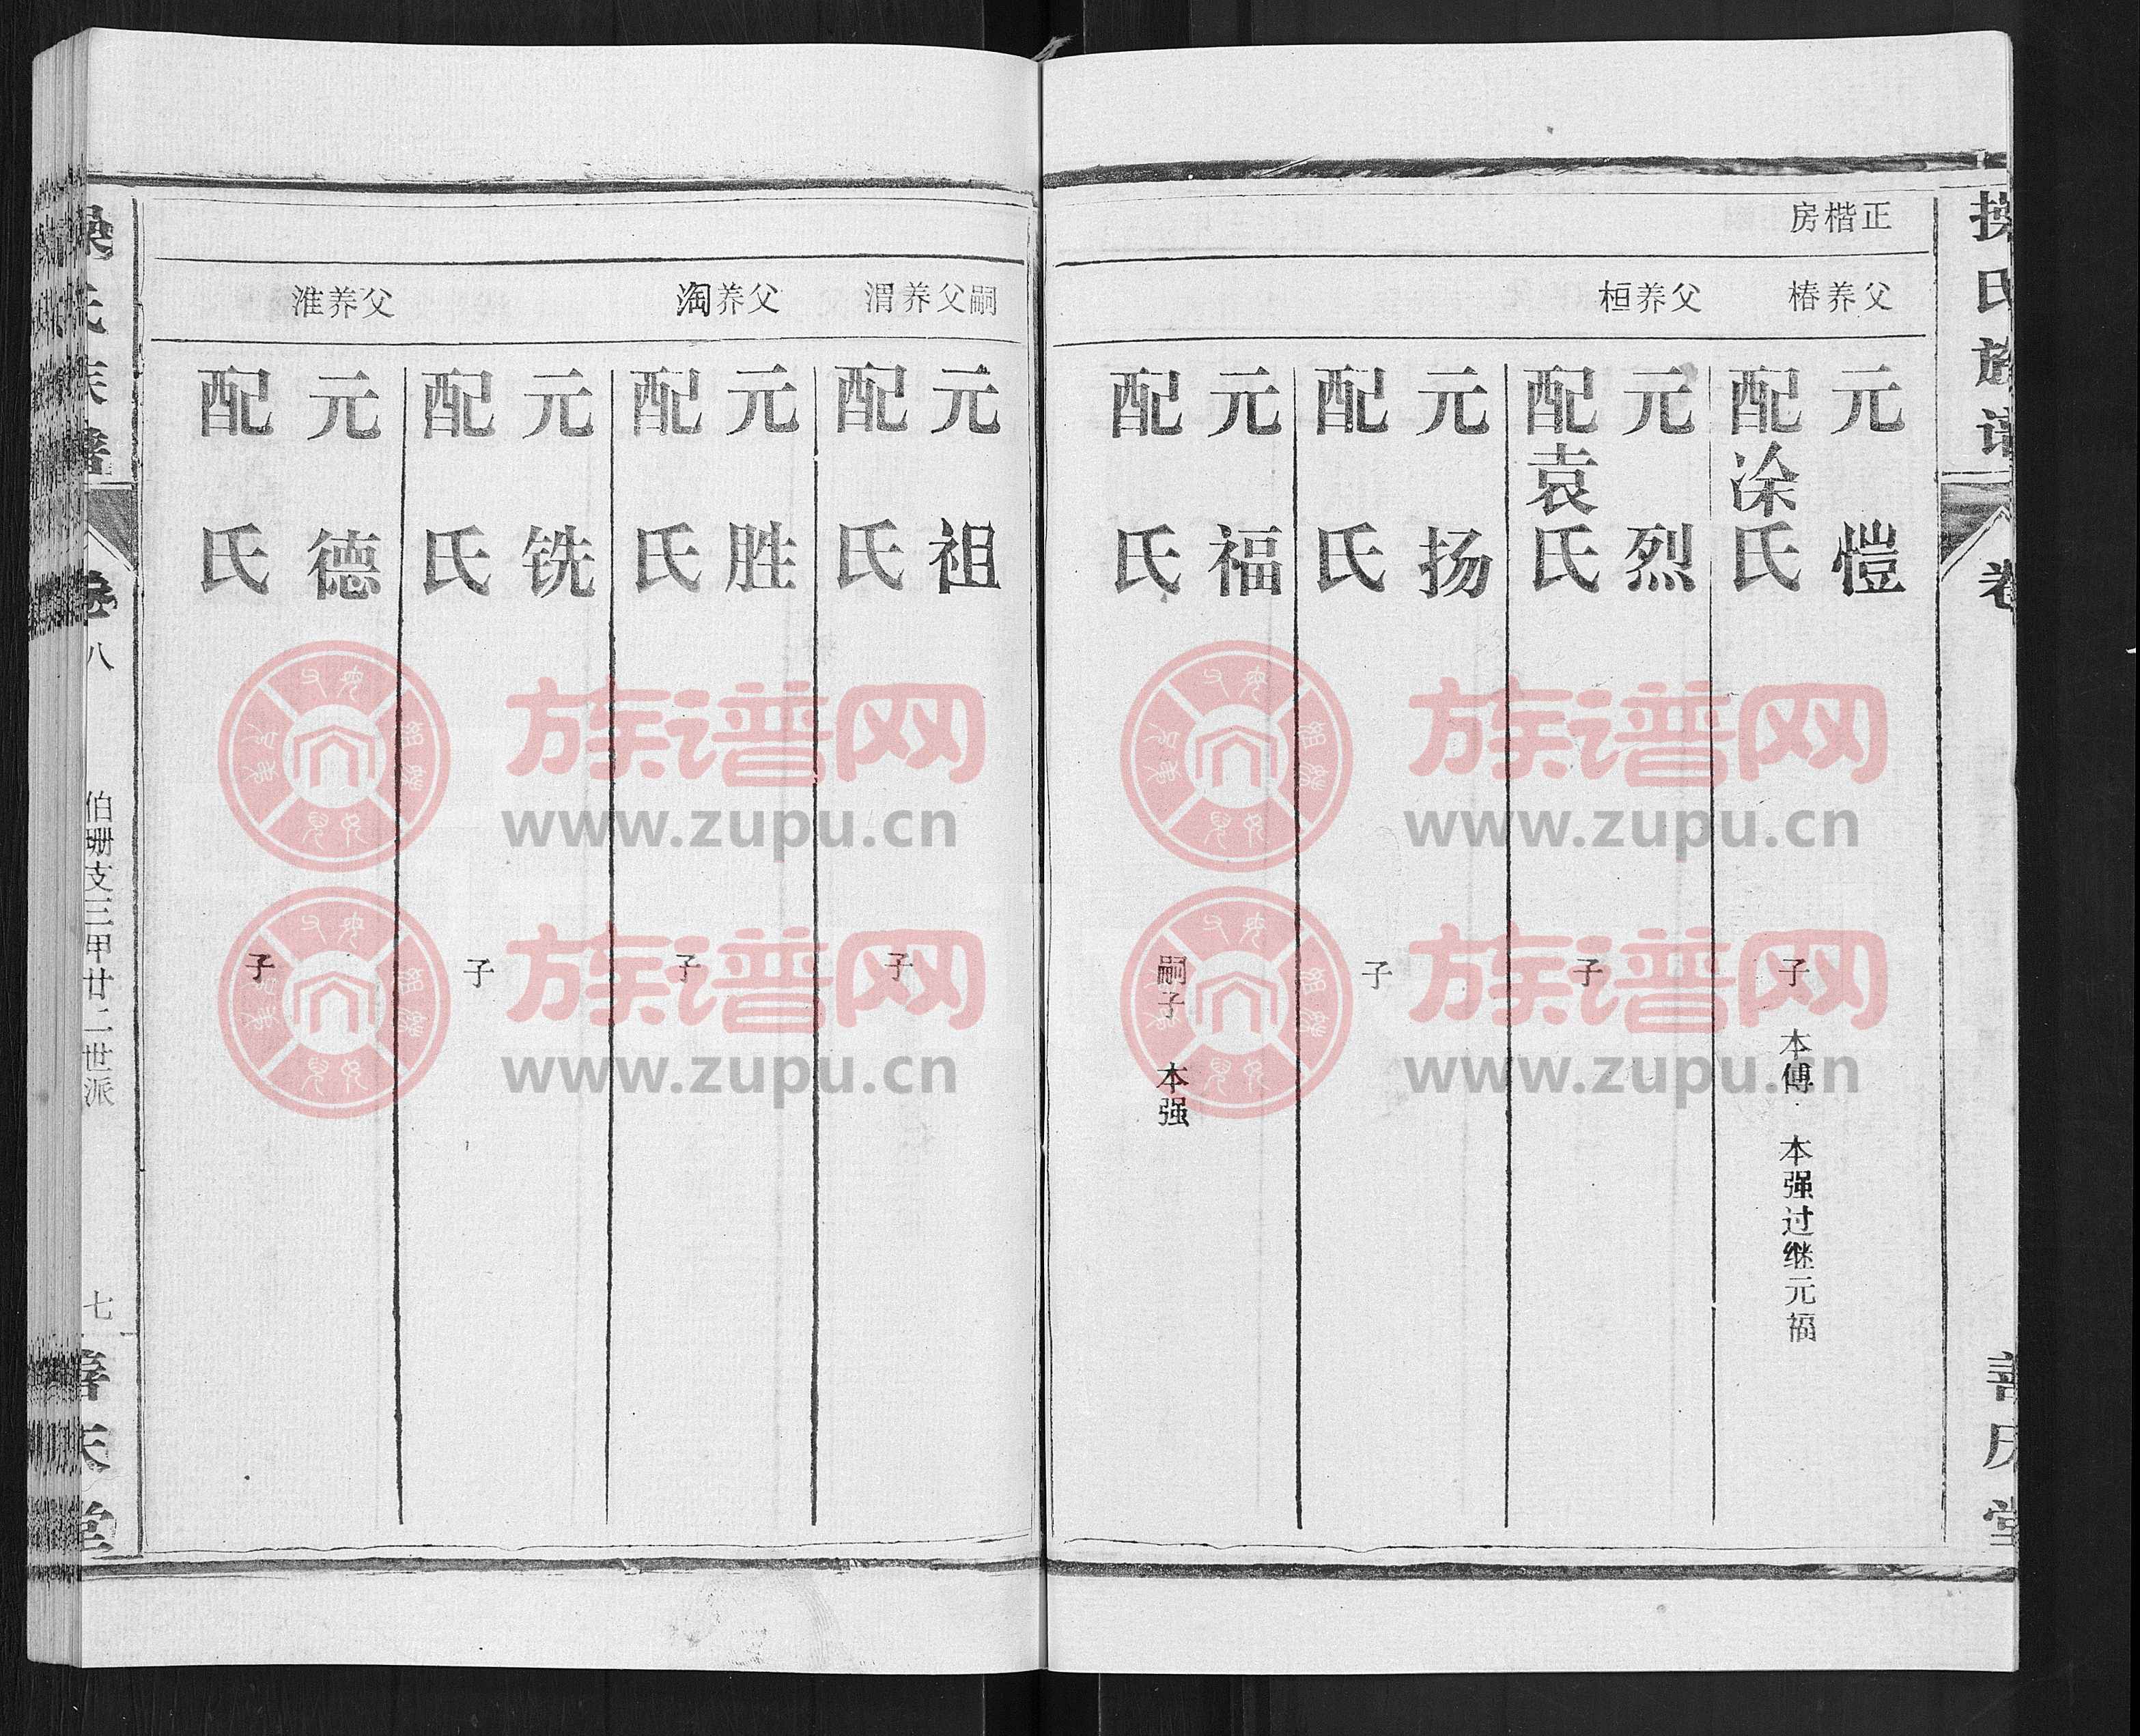 操氏族谱
卷
善庆堂
正楷房
父养椿
父养桓
元恺
配涂氏
子 本傅 本强过继元福
元烈
配袁氏
子
元扬
配 氏
子
元福
配 氏
嗣子 本强
嗣父养渭
父养淘
父养淮
元祖
配 氏
子
元胜
配 氏
子
元铣
配 氏
子
元德
配 氏
子
操氏族谱
卷八
伯珊支三甲廿二世派
七
善庆堂
族谱网
www.zupu.cn
族谱网
www.zupu.cn
族谱网
www.zupu.cn
族谱网
www.zupu.cn